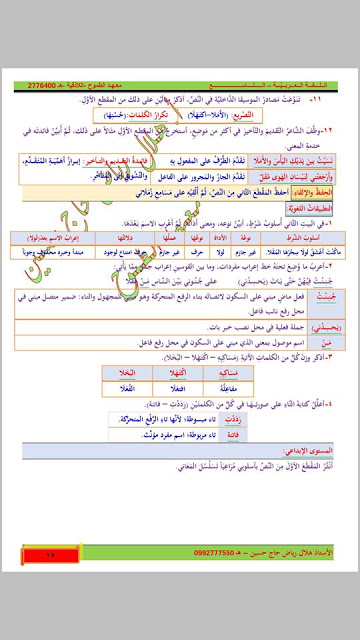 اللغة العربية – التاسع معهد الطموح -اللاذقية -هـ 2776400
١١- تنوّعت مصادرُ الموسيقا الدّاخليّة في النّصّ، أذكرُ مثالين على ذلك من المقطع الأوّل.
التّصريع: (الأملا-اكتهلا) تكرارُ الكلمات: (حُسْنِها)
١٢-وظّف الشّاعرُ التّقديمَ والتّأخيرَ في أكثر من موضعٍ، أستخرجُ من المقطع الأوّل مثالاً على ذلك، ثمّ أُبيّنُ فائدته في
خدمة المعنى.
نَسيتُ بين يديكِ اليأسَ والأملا تقدّم الظّرف على المفعول به فائدةُ التّقديم والتأخير: إبرازُ أهمّيّة المتقدّم،
وأرجعتني لنيسان الهوى مُقَلٌ تقدّم الجارّ والمجرور على الفاعل والتّشويق إلى المتأخّر.
الحفظ والإلقاء: أحفظُ المقطعَ الثّاني من النّصّ، ثمّ أُلقيه على مسامع زملائي
التطبيقات اللغويّة:
١- في البيت الثّاني أسلوبُ شرطٍ، أبيّنُ نوعه، ومعنى أداته، ثمّ أُعربُ الاسمَ بعدها.
أسلوبُ الشّرط نوعهُ الأداة نوعُها عملُها دلالتُها إعراب الاسم بعدها(لولا)
ماكنتُ أعشقُ لولا سِحْرُها المُقلا. غير جازم لولا حرف غير جازم حرف امتناع لوجود مبتدأ وخبره محذوف وجوباً
٢- أُعرِبُ ما وُضِعَ تحتهُ خطٌّ إعرابَ مفرداتٍ، وما بين القوسين إعرابَ جملٍ ممّا يأتي:
جُننتُ فيهنَّ حتّى بات (يَحسدُني) على جُنوني بين النّاس مَن عَقَلا
جُننتُ فعل ماضٍ مبني على السكون لاتصاله بتاء الرفع المتحركة وهو مبني للمجهول والتاء: ضمير متصل مبني في
محل رفع نائب فاعل.
(يَحسدُني) جملة فعلية في محل نصب خبر بات.
مَنْ اسم موصول بمعنى الذي مبني على السكون في محل رفع فاعل.
٣- أذكرُ وزنَ كلٍّ من الكلمات الآتية (مَفاتيه – اكتهلا – البُخَلا).
اكتهلا البُخلا
افتعلا الفُعَلا
٤- أعلّلُ كتابةَ التّاء على صورتيها في كلٍّ من الكلمتين (رَدَدْتِ – فاتنة).
رَدَدْتِ تاء مبسوطة؛ لأنّها تاء الرّفع المتحرّكة.
فاتنة تاء مربوطة؛ اسم مفرد مؤنّث.
المستوى الإبداعي:
أنثرُ المقطعَ الأوّلَ من النّصّ بأسلوبي مُراعياً تسلسُلَ المعاني.
الأستاذ هلال رياض حاج حسين – هـ 0992777550